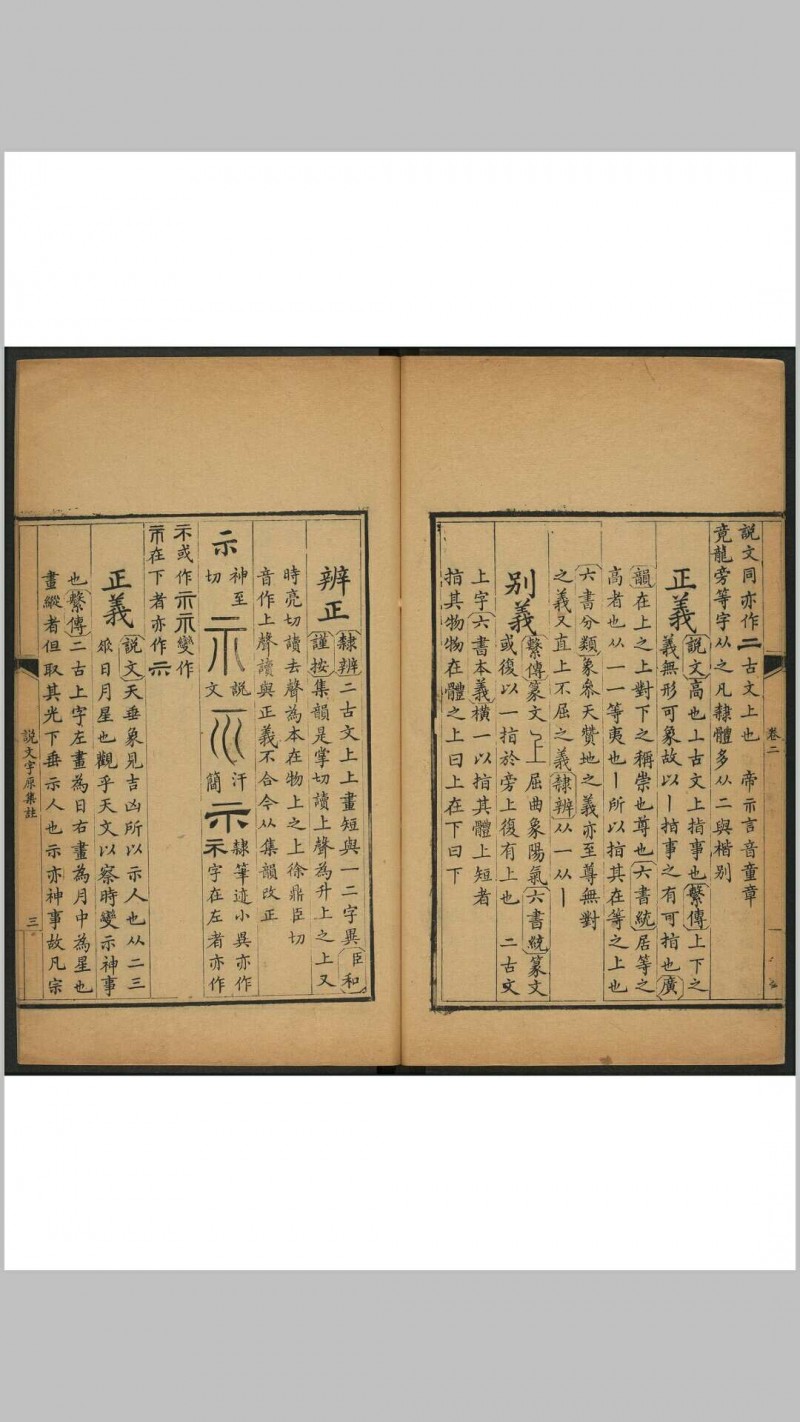 卷二
説文同亦作二古文上也　帝示言音童章
竟龍旁等字从之凡隸體多从二與楷別
正義　説文高也丄古文上指事也繫傳上下之
義無形可象故以一指事之有可指也廣
韻在上之上對下之稱崇也尊也六書統居等之
高者也从一一等夷也丨所以指其在等之上也
六書分類象參天贊地之義亦至尊無對
之義又直上不屈之義隸辨从一从丨
別義　繫傳篆文丄屈曲象陽氣六書統篆文
或復以一指於旁上復有上也　二古文
上字六書本義橫一以指其體上短者
指其物物在體之上曰上在下曰下
辨正　隸辨二古文上上畫短與一二字異臣和
謹按集韻是掌切讀上聲為升上之上又
時亮切讀去聲為本在物上之上徐鼎臣切
音作上聲讀與正義不合今从集韻改正
示　神至切　示説文　汗簡　示隸筆迹小異亦作
示字在左者亦作
不或作示示變作
示在下者亦作示
正義　説文天垂象見吉凶所以示人也从二三
𠂹日月星也觀乎天文以察時變示神事
也繫傳二古上字左畫為日右畫為月中為星也
畫縱者但取其光下垂示人也示亦神事故凡宗
説文字原集註
三